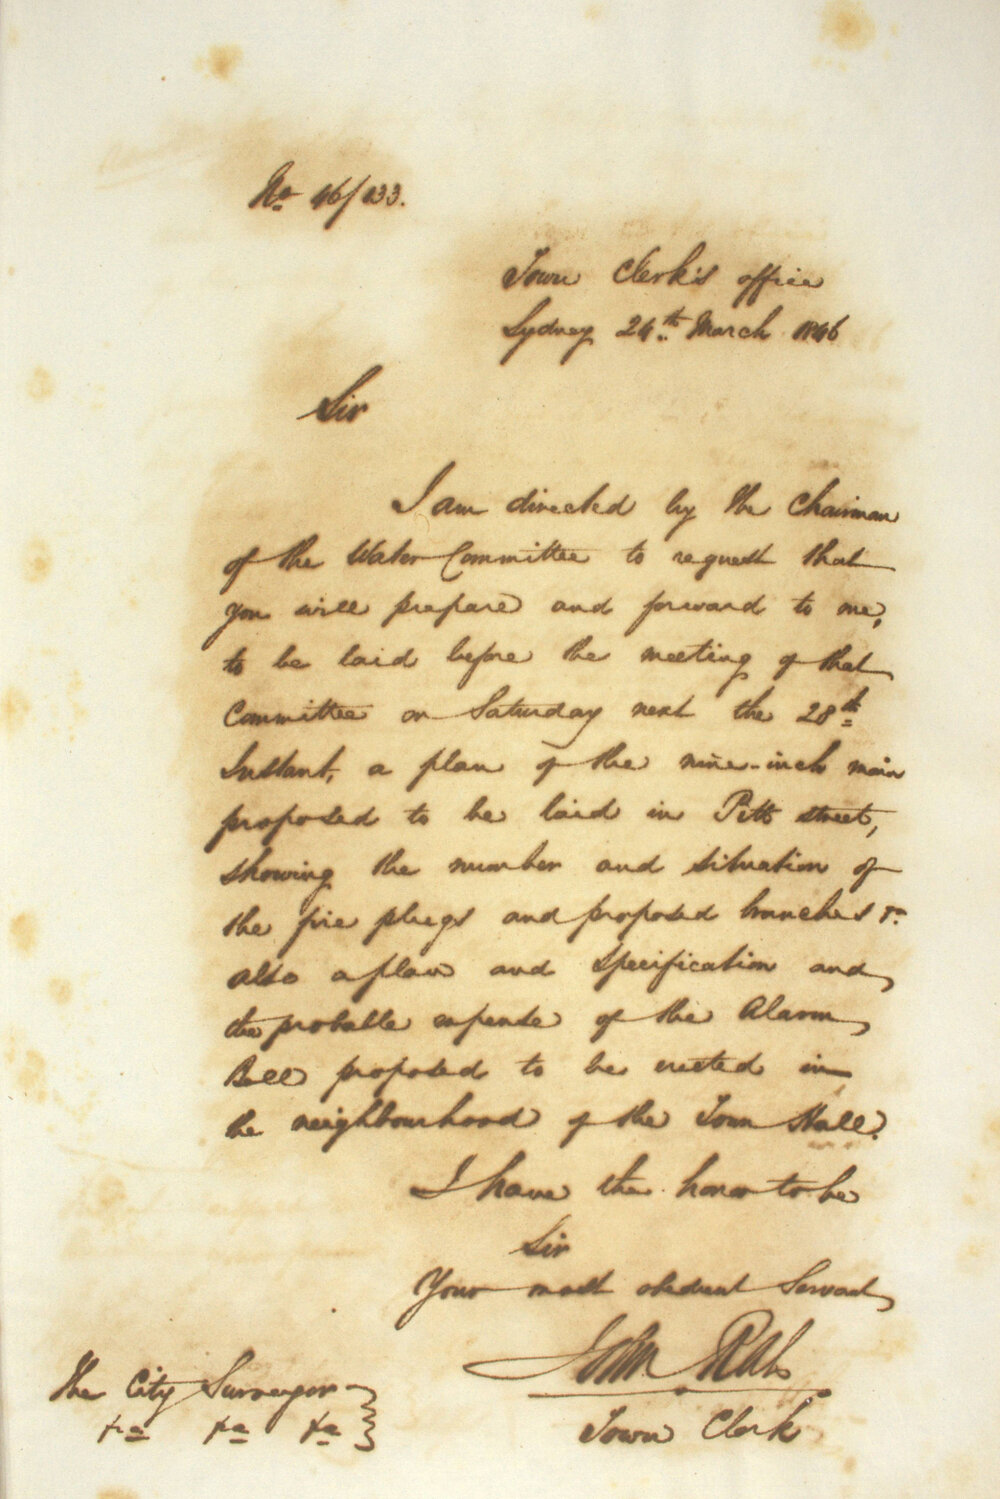 No 46/133.
Town Clerk's office
Sydney 24th March 1846
Sir
I am directed by the Chairman
of the Water Committee to request that
you will prepare and forward to me,
to be laid before the meeting of that
Committee on Saturday next the 28th
Instant, a plan of the nine-inch main
proposed to be laid in Pitt street,
showing the number and situation of
the fire plugs and proposed branches &c
also a plan and specification and
the probable expense of the Alarm
Bell proposed to be erected in
the neighbourhood of the Town Hall.
I have the honor to be
Sir
Your most obedient Servant
John Rae
Town Clerk
The City Surveyor
&c &c &c